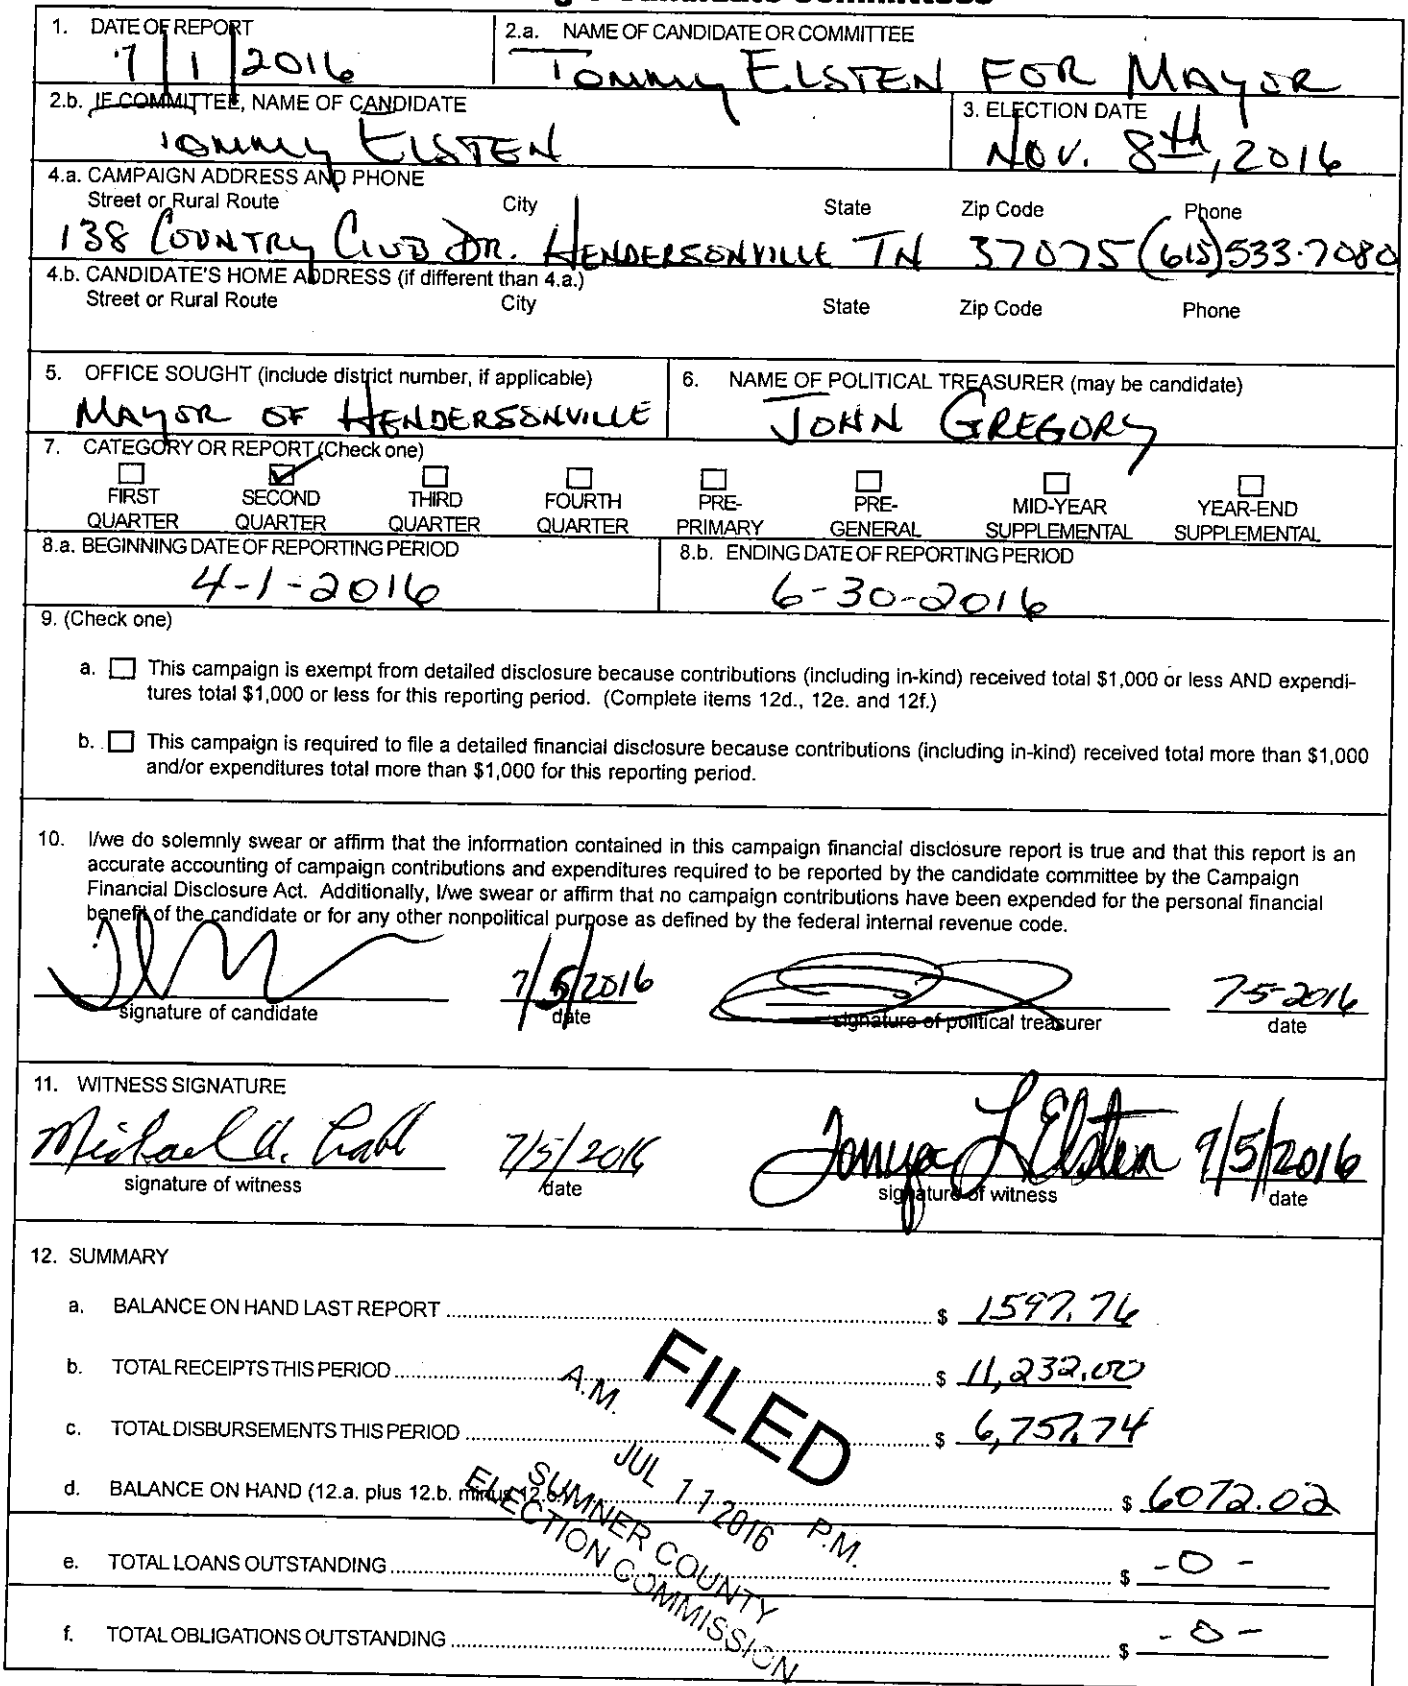 1. DATE OF REPORT
7/1/2016
2.a. NAME OF CANDIDATE OR COMMITTEE
TOMMY ELSTEN FOR MAYOR
2.b. IF COMMITTEE, NAME OF CANDIDATE
TOMMY ELSTEN
3. ELECTION DATE
NOV. 8th, 2016
4.a. CAMPAIGN ADDRESS AND PHONE
Street or Rural Route City State Zip Code Phone
138 COUNTRY CLUB DR. HENDERSONVILLE TN 37075 (615)533-7080
4.b. CANDIDATE'S HOME ADDRESS (if different than 4.a.)
Street or Rural Route City State Zip Code Phone
5. OFFICE SOUGHT (include district number, if applicable)
MAYOR OF HENDERSONVILLE
6. NAME OF POLITICAL TREASURER (may be candidate)
JOHN GREGORY
7. CATEGORY OR REPORT (Check one)
FIRST QUARTER
SECOND QUARTER
THIRD QUARTER
FOURTH QUARTER
PRE-PRIMARY
PRE-GENERAL
MID-YEAR SUPPLEMENTAL
YEAR-END SUPPLEMENTAL
8.a. BEGINNING DATE OF REPORTING PERIOD
4-1-2016
8.b. ENDING DATE OF REPORTING PERIOD
6-30-2016
9. (Check one)
a. This campaign is exempt from detailed disclosure because contributions (including in-kind) received total $1,000 or less AND expendi-
tures total $1,000 or less for this reporting period. (Complete items 12d., 12e. and 12f.)
b. This campaign is required to file a detailed financial disclosure because contributions (including in-kind) received total more than $1,000
and/or expenditures total more than $1,000 for this reporting period.
10. I/we do solemnly swear or affirm that the information contained in this campaign financial disclosure report is true and that this report is an
accurate accounting of campaign contributions and expenditures required to be reported by the candidate committee by the Campaign
Financial Disclosure Act. Additionally, I/we swear or affirm that no campaign contributions have been expended for the personal financial
benefit of the candidate or for any other nonpolitical purpose as defined by the federal internal revenue code.
7/5/2016 7-5-2016
signature of candidate date signature of political treasurer date
11. WITNESS SIGNATURE
Michael A. 7/5/2016 Tonya L Elsten 7/5/2016
signature of witness date signature of witness date
12. SUMMARY
a. BALANCE ON HAND LAST REPORT $ 1597.76
b. TOTAL RECEIPTS THIS PERIOD $ 11,232.00
c. TOTAL DISBURSEMENTS THIS PERIOD $ 6,757.74
d. BALANCE ON HAND (12.a. plus 12.b. minus 12.c.) $ 6072.02
e. TOTAL LOANS OUTSTANDING $ -0-
f. TOTAL OBLIGATIONS OUTSTANDING $ -0-
FILED
A.M. JUL 11 2016 P.M.
SUMNER COUNTY
ELECTION COMMISSION